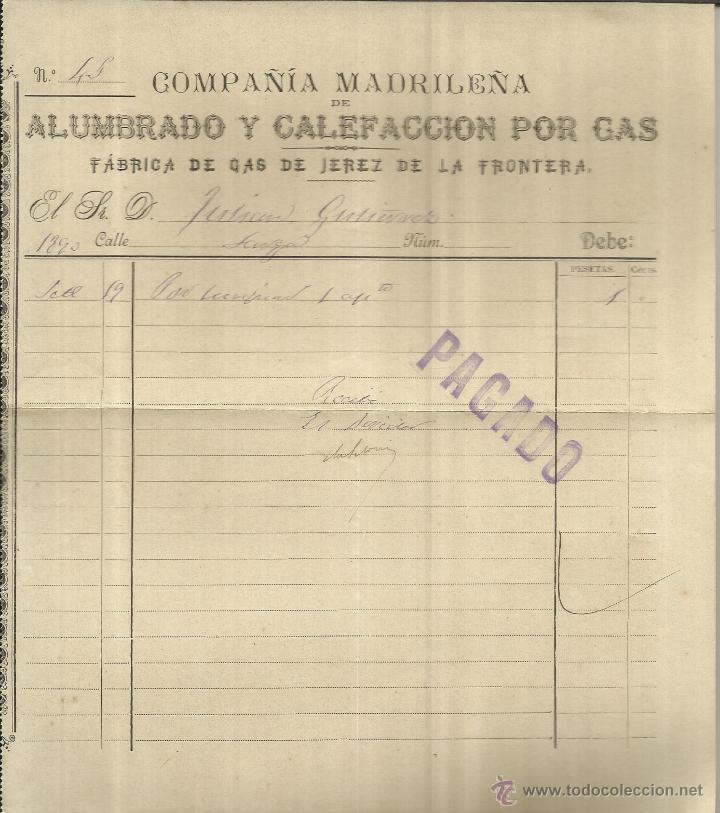 N.º 45
COMPAÑÍA MADRILEÑA
DE
ALUMBRADO Y CALEFACCION POR GAS
FÁBRICA DE GAS DE JEREZ DE LA FRONTERA.
El Sr. D. Julian Gutierrez
1890 Calle Larga Núm. Debe:
PESETAS. Cénts.
19 Por 1 1
PAGADO
Recibí
El
www.todocoleccion.net